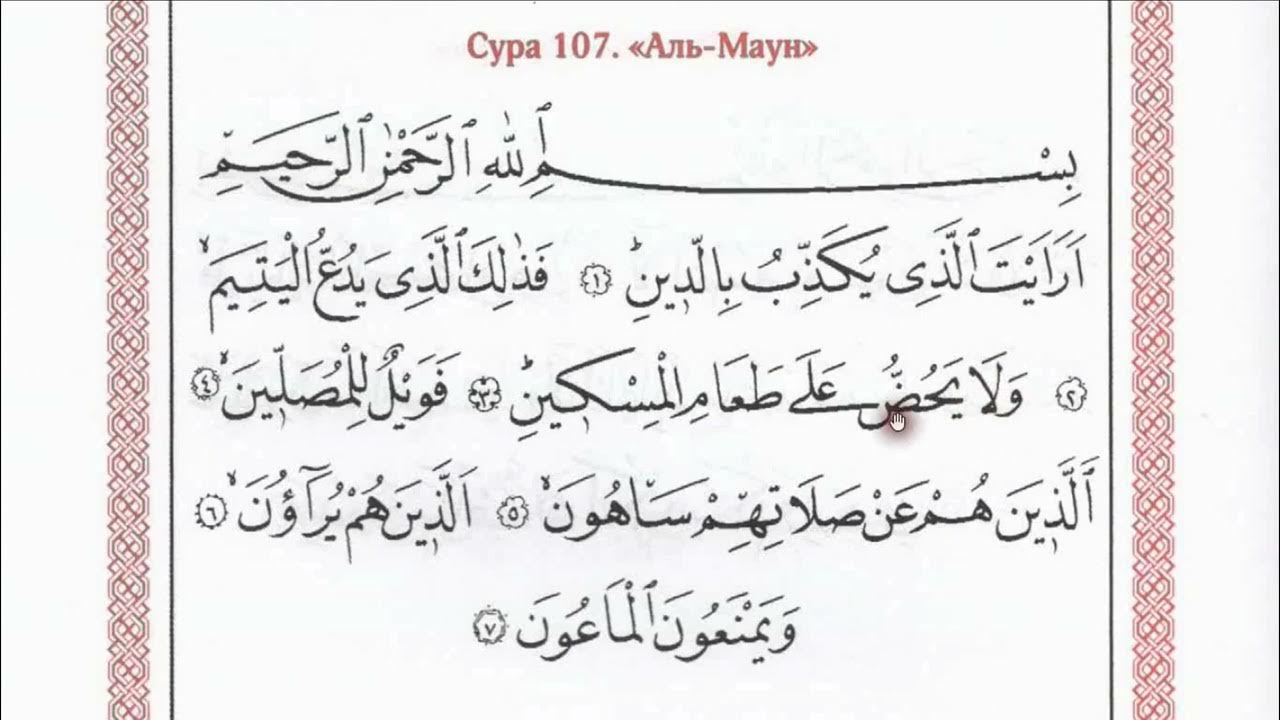 Сура 107. «Аль-Маун»
بِسْمِ ٱللهِ ٱلرَّحْمٰنِ ٱلرَّحِيمِ
اَرَاَيْتَ ٱلَّذِى يُكَذِّبُ بِالدِّينِۜ ﴿١﴾ فَذٰلِكَ ٱلَّذِى يَدُعُّ الْيَتِيمَۙ
﴿٢﴾ وَلَا يَحُضُّ عَلَى طَعَامِ الْمِسْكِينِۜ ﴿٣﴾ فَوَيْلٌ لِلْمُصَلِّينَۙ ﴿٤﴾
اَلَّذِينَ هُمْ عَنْ صَلَاتِهِمْ سَاهُونَۙ ﴿٥﴾ اَلَّذِينَ هُمْ يُرَآؤُنَۙ ﴿٦﴾
وَيَمْنَعُونَ ٱلْمَاعُونَ ﴿٧﴾